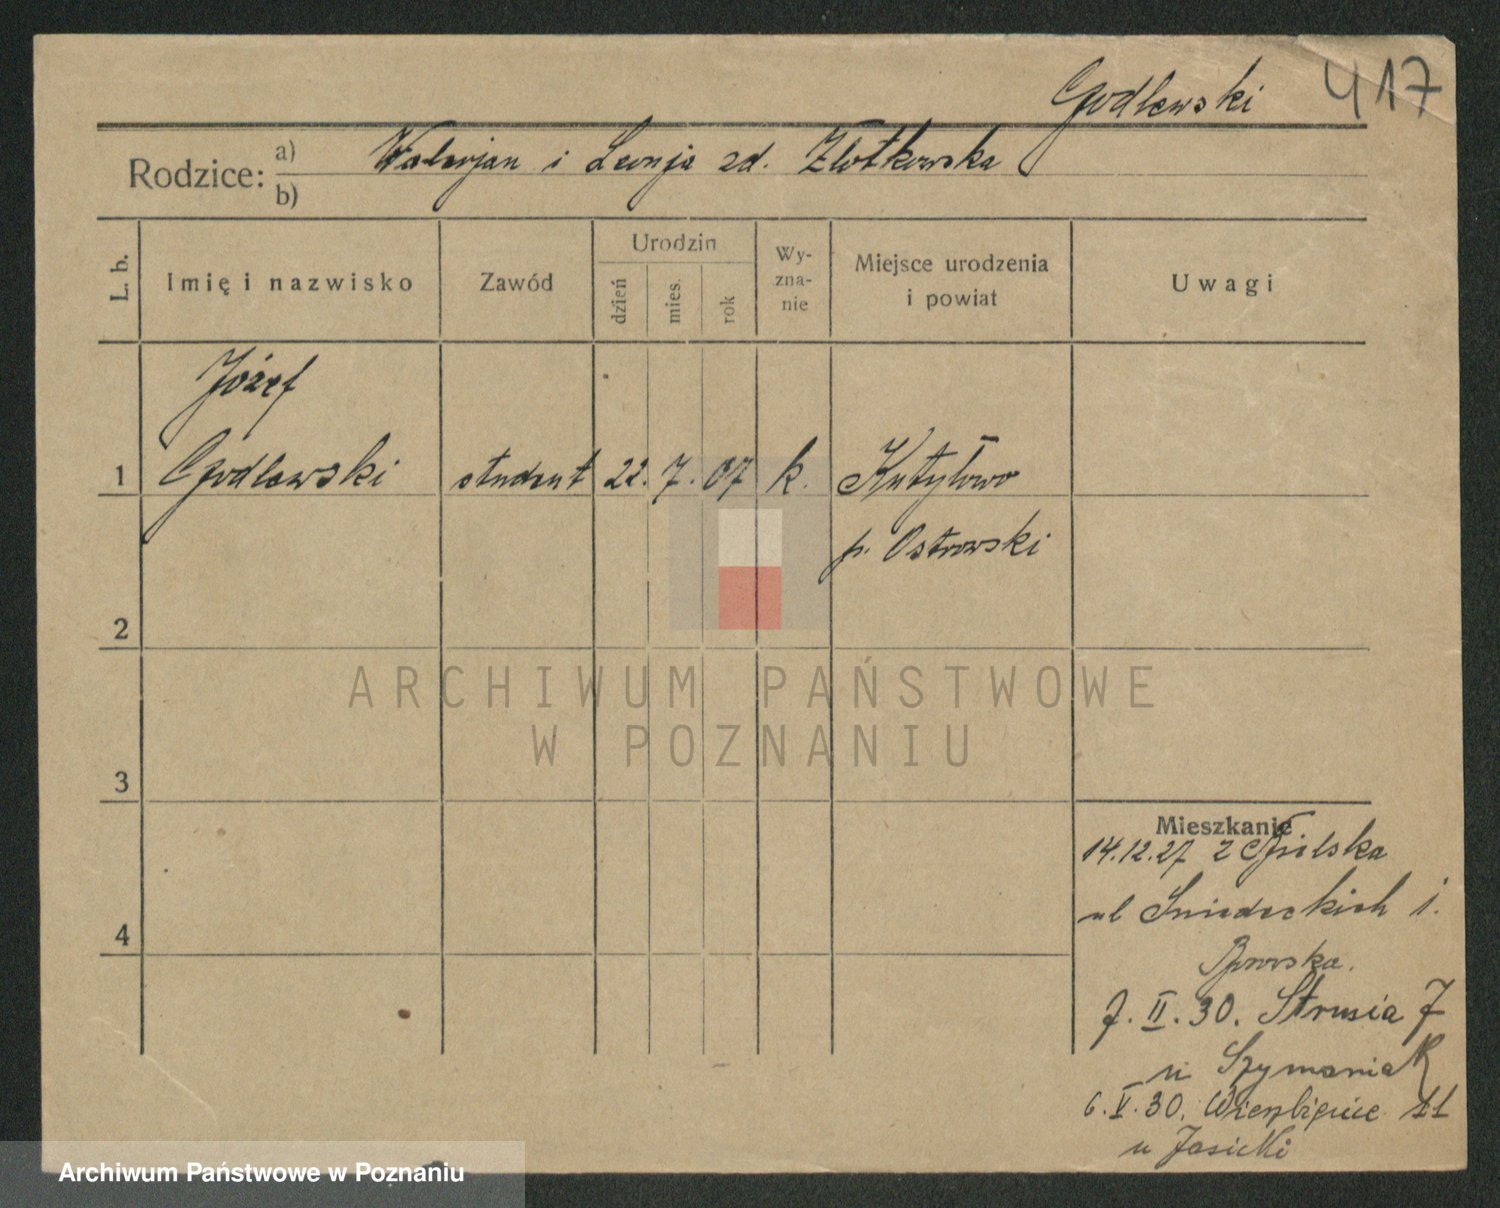 Godlewski 417
Rodzice: a) Walerjan i Leonja zd. Złotkowska
b)
L. b.
Imię i nazwisko
Zawód
Urodzin
dzień
mies.
rok
Wy-
zna-
nie
Miejsce urodzenia
i powiat
Uwagi
Józef
1 Godlewski student 22. 7. 07 k. Kutyłowo
p. Ostrowski
2
ARCHIWUM PAŃSTWOWE
W POZNANIU
3
Mieszkanie
14.12.27 z
ul Śniadeckich
4
7. II. 30. Strusia 7
u Szymaniak
6. V. 30. Wierzbięcice 11
u Jasicki
Archiwum Państwowe w Poznaniu